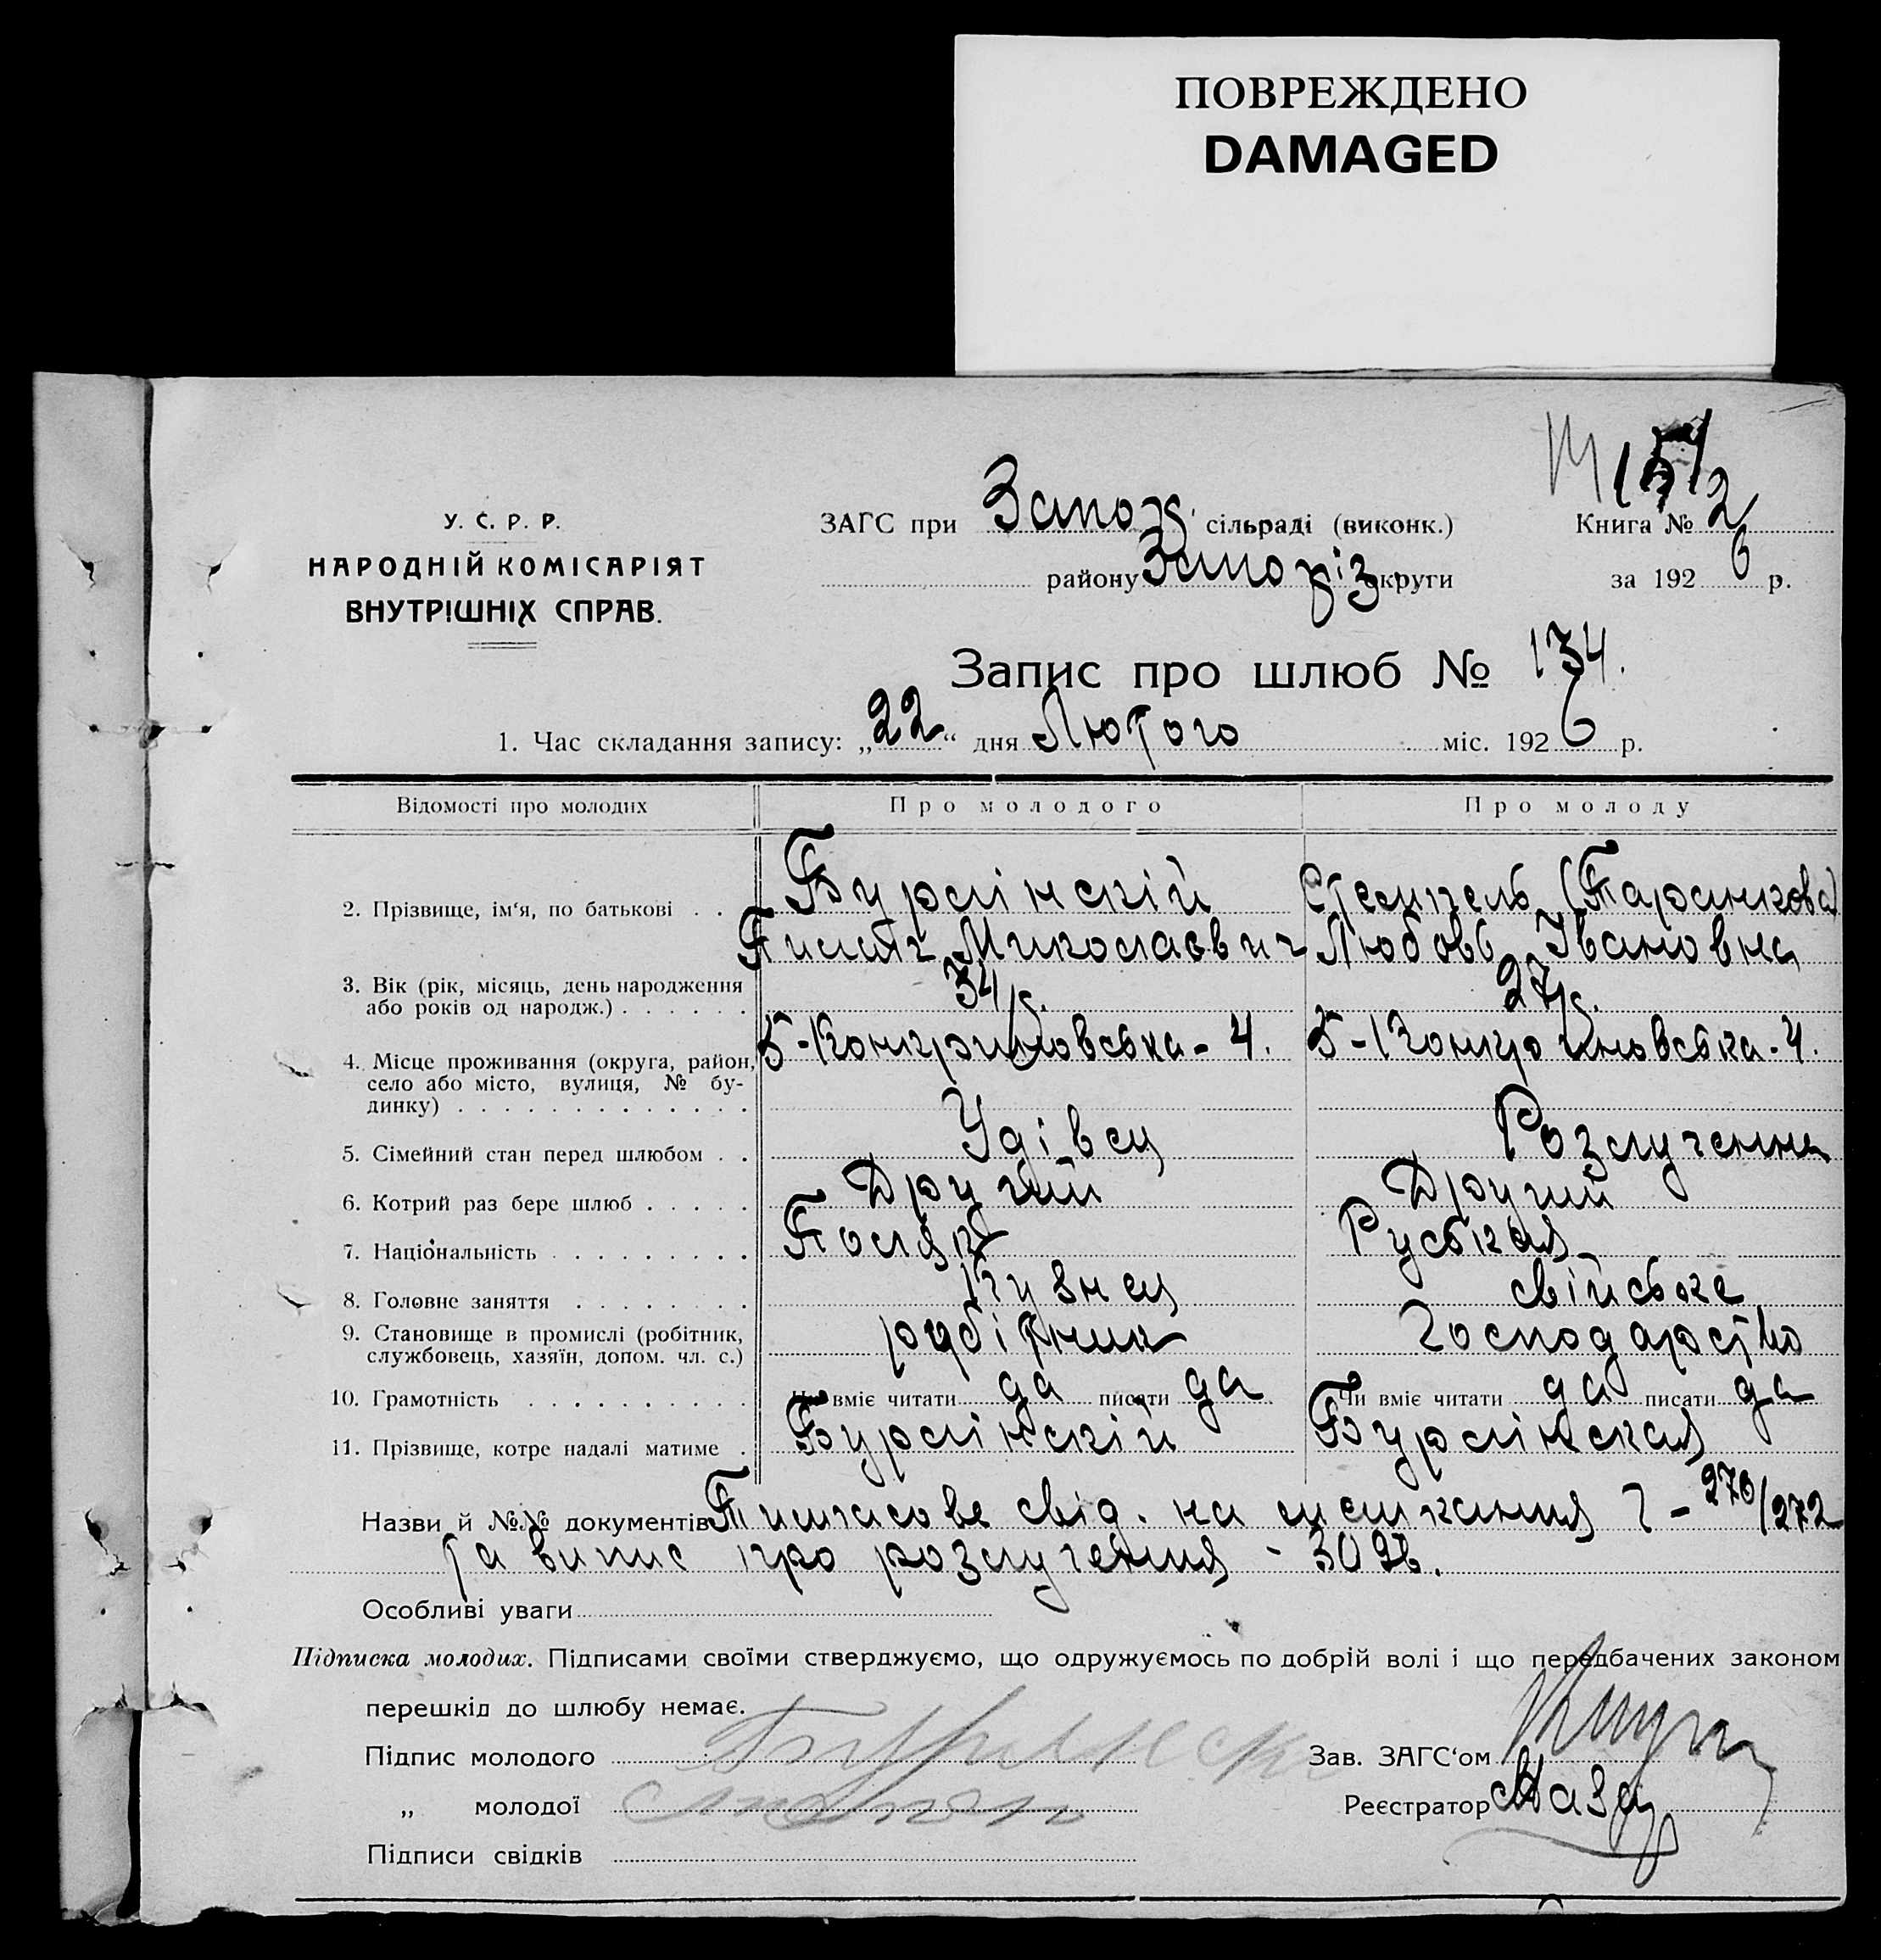 ПОВРЕЖДЕНО
DAMAGED
У. С. Р. Р.
НАРОДНІЙ КОМІСАРІЯТ
ВНУТРІШНІХ СПРАВ.
ЗАГС при Запоз. сільраді (виконк.)
району Запоріз округи
Книга № 2
за 1926 р.
Запис про шлюб № 134.
1. Час складання запису: „22“ дня Лютого міс. 1926 р.
Відомості про молодих Про молодого Про молоду
2. Прізвище, ім‘я, по батькові . . Бурлінскій
Миколаєвич Любовь Івановна
3. Вік (рік, місяць, день народження
або років од народж.) . . . . . . 34 р. 27 р.
4. Місце проживання (округа, район,
село або місто, вулиця, № бу-
динку) . . . . . . . . . . . . .
5. Сімейний стан перед шлюбом . . Удівец Розлученна
6. Котрий раз бере шлюб . . . . . Другий Другий
7. Національність . . . . . . . . Поляк Руськая
8. Головне заняття . . . . . . . . Кузнец свійське
9. Становище в промислі (робітник,
службовець, хазяїн, допом. чл. с.) робітник господарство
10. Грамотність . . . . . . . . . . Чи вміє читати да писати да Чи вміє читати да писати да
11. Прізвище, котре надалі матиме . Бурлінскій Бурлінская
Назви й №№ документів свід. на мешкання 270/272
та випис про розлучення - 3098.
Особливі уваги
Підписка молодих. Підписами своїми стверджуємо, що одружуємось по добрій волі і що передбачених законом
перешкід до шлюбу немає.
Підпис молодого
Зав. ЗАГС‘ом
„ молодої
Реєстратор
Підписи свідків